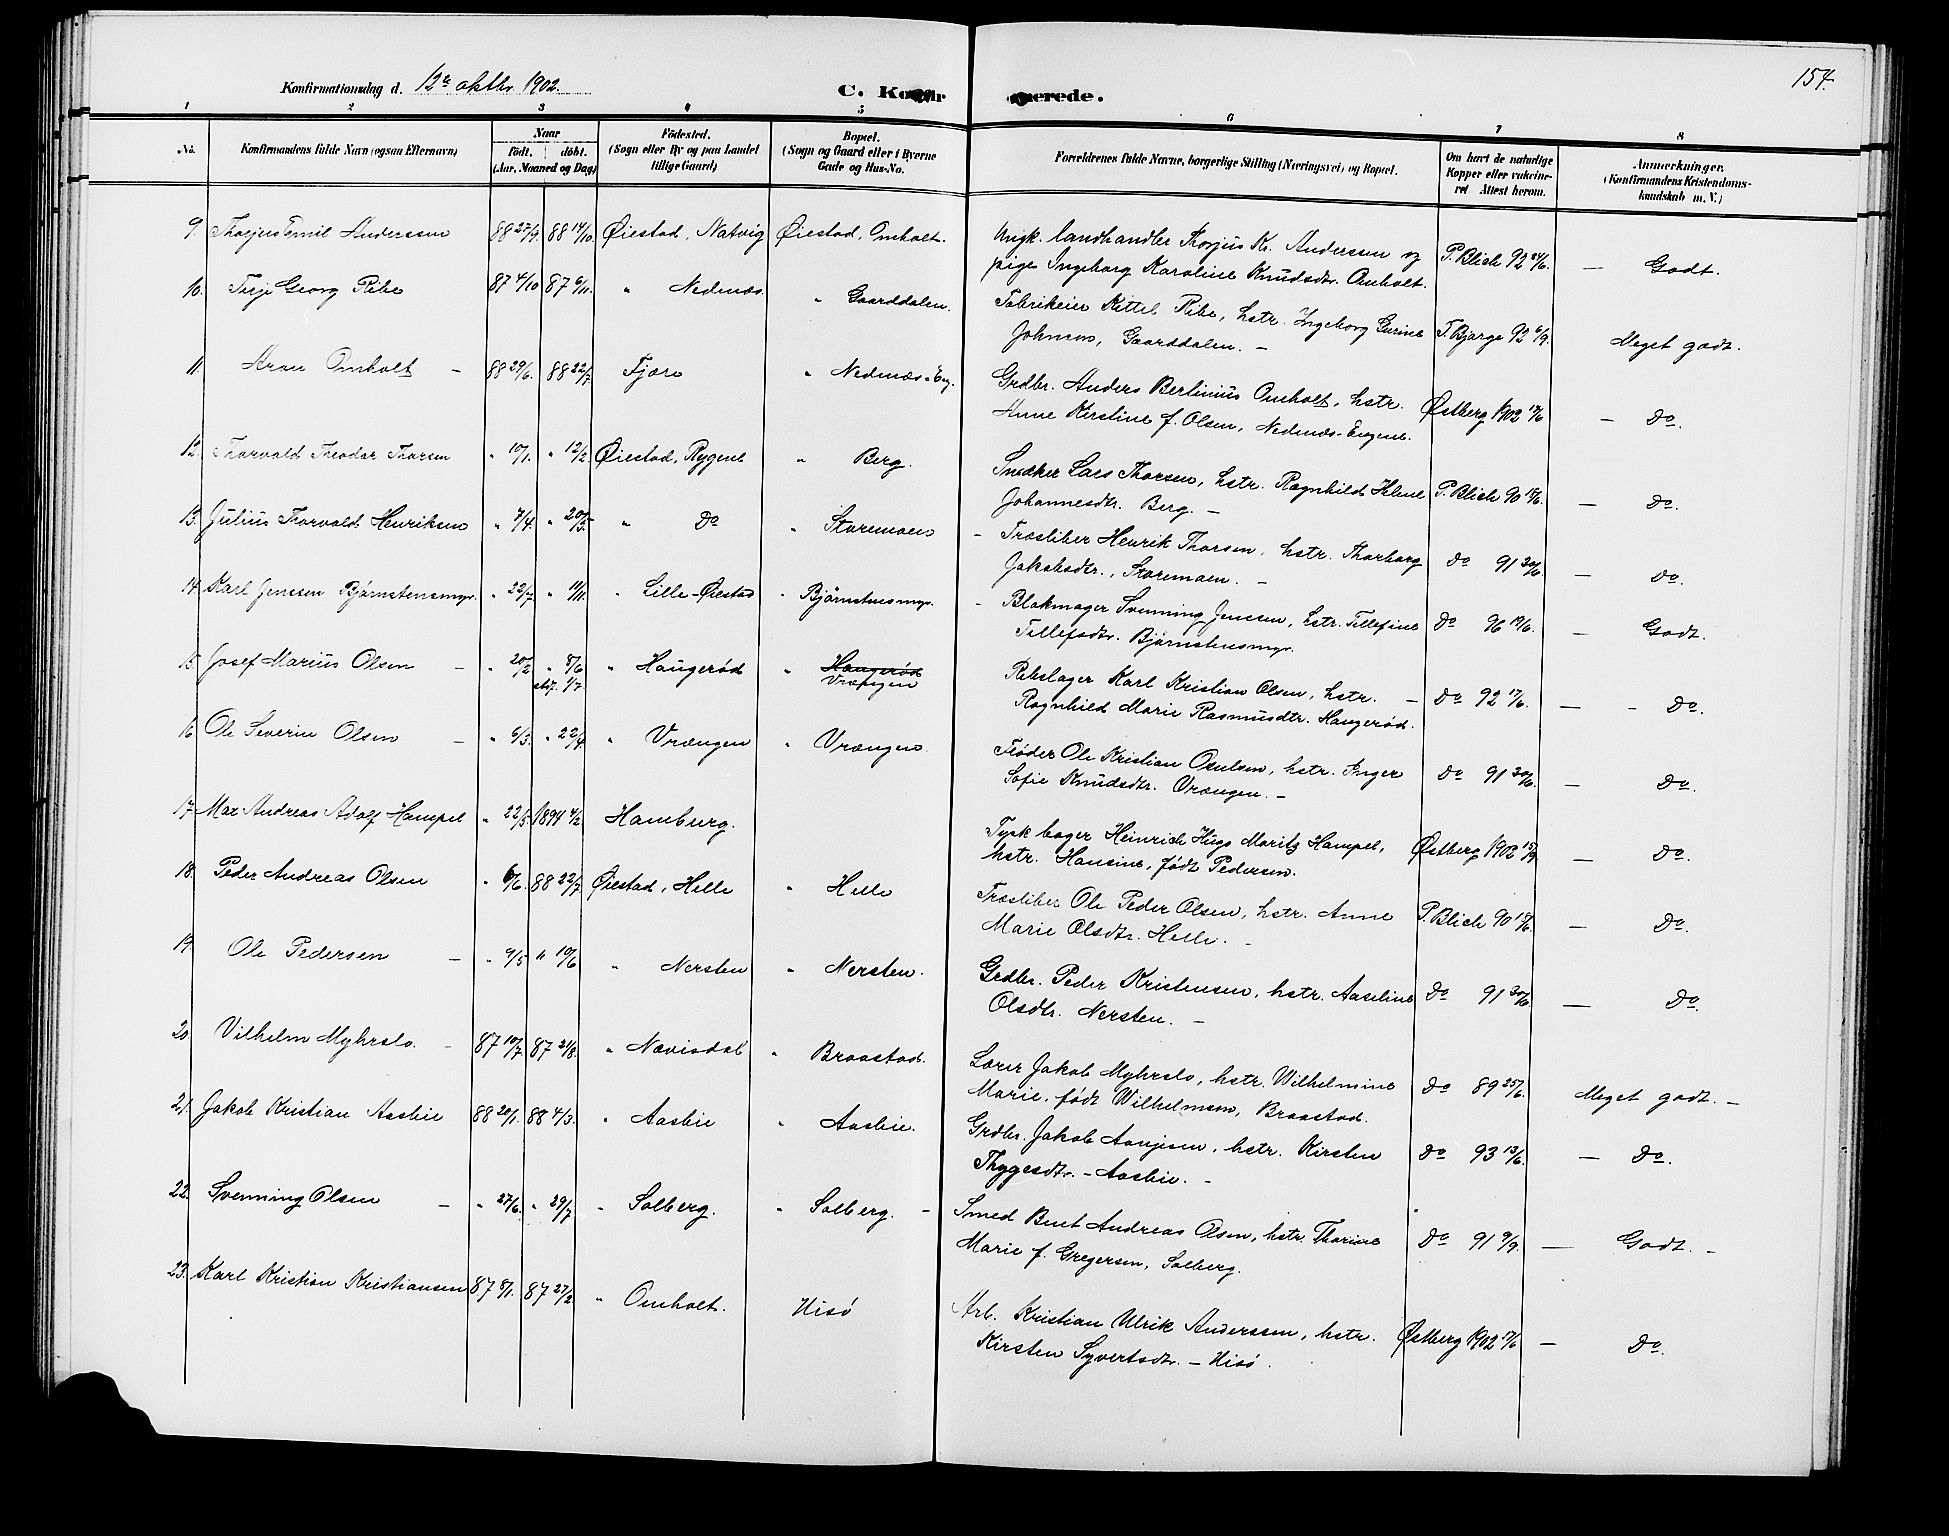 154
Konfirmationsdag d. 12te oktbr. 1902.
C. Konfir erede.
1 2 3 4 5 6 7 8
No. Konfirmandens fulde Navn (ogsaa Efternavn) Naar født. døbt. (Aar, Maaned og Dag) Fødested. (Sogn eller By og paa Landet tillige Gaard) Bopæl. (Sogn og Gaard eller i Byerne Gade og Hus-No. Forældrenes fulde Navne, borgerlige Stilling (Næringsvei) og Bopæl. Om havt de naturlige Kopper eller vakcineret Attest herom. Anmerkninger. (Konfirmandens Kristendomskundskab m. V.)
9. Thorjus Emil Anderssen 88 27/9. 88 14/10. Øiestad, Natvig Øiestad, Omholt. Ungk. landhandler Thorjus Kr. Anderssen og P. Blich 92 24/6. — Godt.
pige Ingeborg Karoline Knudsdtr. Omholt.
10. Terje Georg Ribe 87 4/10 87 6/11. " Nedenæs. " Gaarddalen. Fabrikeier Kittel Ribe, hstr. Ingeborg Gurine T. Bjorge 92 6/9. Meget godt.
Johnsen, Gaarddalen. —
11. Aron Omholt — 88 29/6. 88 22/7. Fjære " Nedenæs-Eng. Grdbr. Anders Berlinius Omholt, hstr. Østberg 1902 17/6 — Do.
Anne Kirstine f. Olsen, Nedenæs-Engene.
12. Thorvald Theodor Thorsen " 10/1. " 12/2 Øiestad, Rygene " Berg. Snedker Lars Thorsen, hstr. Ragnhild Helene P. Blich 90 15/6. — Do.
Johannesdtr. Berg. —
13. Julius Thorvald Henriksen " 7/4. " 20/5. " Do " Storemoen — Træsliber Henrik Thorsen, hstr. Thorborg Do 91 30/6. — Do.
Jakobsdtr., Storemoen. —
14. Karl Jenssen Bjørnstensmyr. " 22/7 " 11/11. " Lille-Øiestad " Bjørnstensmyr. — Blokmager Svenning Jenssen, hstr. Tellefine Do 96 19/6. — Godt.
Tellefsdtr. Bjørnstensmyr.
15. Josef Marius Olsen — " 20/2 " 8/6 " Haugerød " Haugerød Rebslager Karl Kristian Olsen, hstr. — Do 92 17/6. — - Do.
stdf. 1/7. Vrængen Ragnhild Marie Rasmusdtr. Haugerød.
16. Ole Severin Olsen — " 6/3. " 22/4. " Vrængen " Vrængen. Fløder Ole Kristian Osulsen, hstr. Inger Do 91 30/6. — Do.
Sofie Knudsdtr. Vrængen. —
17. Max Andreas Adolf Hampel " 22/5. 1894 4/2 Hamburg. Tysk bager Heinrich Hugo Moritz Hampel, Østberg 1902 15/9 — Do.
hstr. Hansine, født Pedersen.
18. Peder Andreas Olsen " 6/6. 88 22/7 Øiestad, Helle " Helle Træsliber Ole Peder Olsen, hstr. Anne P. Blich 90 15/6. — Do.
Marie Olsdtr. Helle. —
19. Ole Pedersen — " 9/5 " 10/6 " Nersten " Nersten. Grdbr. Peder Kristensen, hstr. Aaseline Do 91 30/6. — Do.
Olsdtr. Nersten. —
20. Vilhelm Myhrslo. — 87 10/7. 87 21/8. " Nævisdal " Braastad. Lærer Jakob Myhrslo, hstr. Wilhelmine Do 89 25/6. Meget godt. —
Marie, født Wilhelmsen, Braastad.
21. Jakob Kristian Aasbie 88 20/1. 88 4/3. " Aasbie " Aasbie. Grdbr. Jakob Aanjesen, hstr. Kirsten Do 93 13/6. — Do.
Thygesdtr. — Aasbie. —
22. Svenning Olsen — " 27/6. " 29/7 " Solberg. " Solberg. — Smed Bent Andreas Olsen, hstr. Thorine Do 91 9/9. — Godt. —
Marie f. Gregersen, Solberg.
23. Karl Kristian Kristiansen 87 8/1. 87 27/2 " Omholt. Hisø Arb. Kristian Ulrik Anderssen, hstr. Østberg 1902 17/6 — Do.
Kirsten Syvertsdtr. — Hisø.